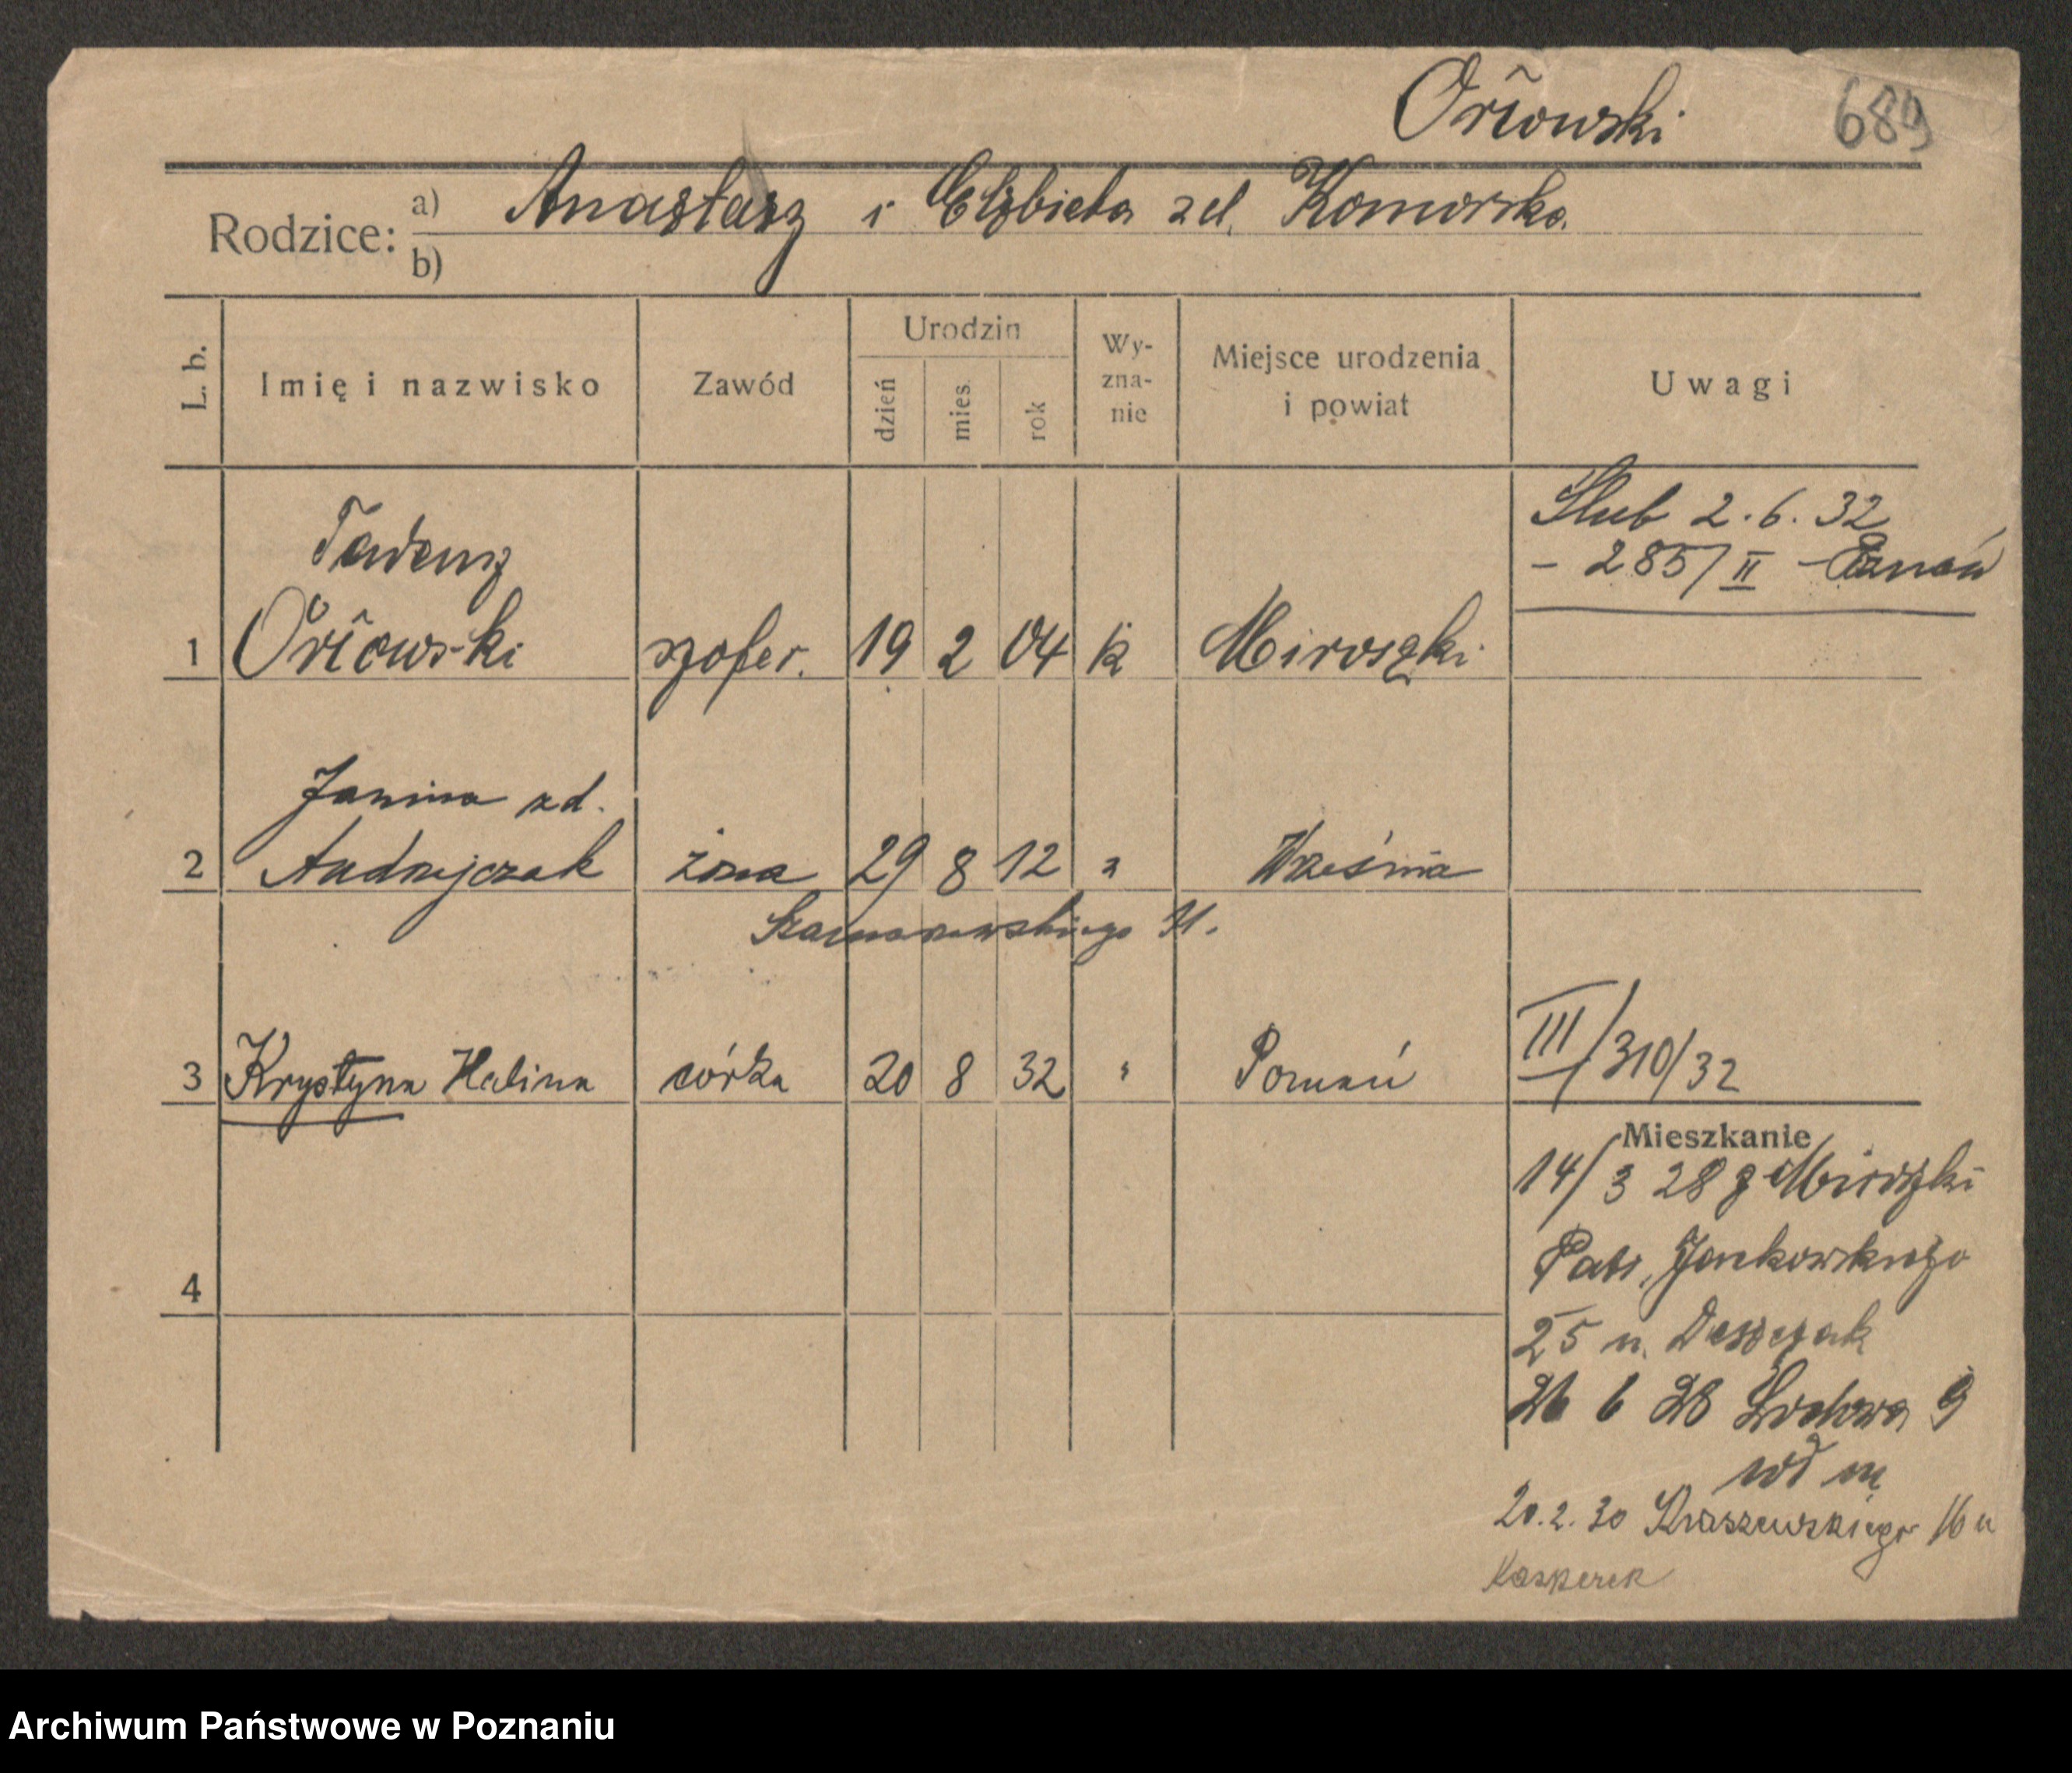 Orłowski 689
Rodzice: a) Anastazy i Elżbieta zd. Komorska
b)
L. b. Imię i nazwisko Zawód Urodzin dzień mies. rok Wy-zna-nie Miejsce urodzenia i powiat Uwagi
Slub 2.6.32
- 285/II - Poznań
Tadeusz
1 Orłowski szofer. 19 2 04 k Miroszki
Janina zd.
2 Andrzejczak żona 29 8 12 " Września
Szamarzewskiego 11.
3 Krystyna Halina córka 20 8 32 " Poznań III/310/32
Mieszkanie
14/3 28 z Miroszki
Patr. Jankowskiego
4
25 u. Deszczak
26 6 28 9
20.2.30 Kraszewskiego 16 u
Kasperek
Archiwum Państwowe w Poznaniu